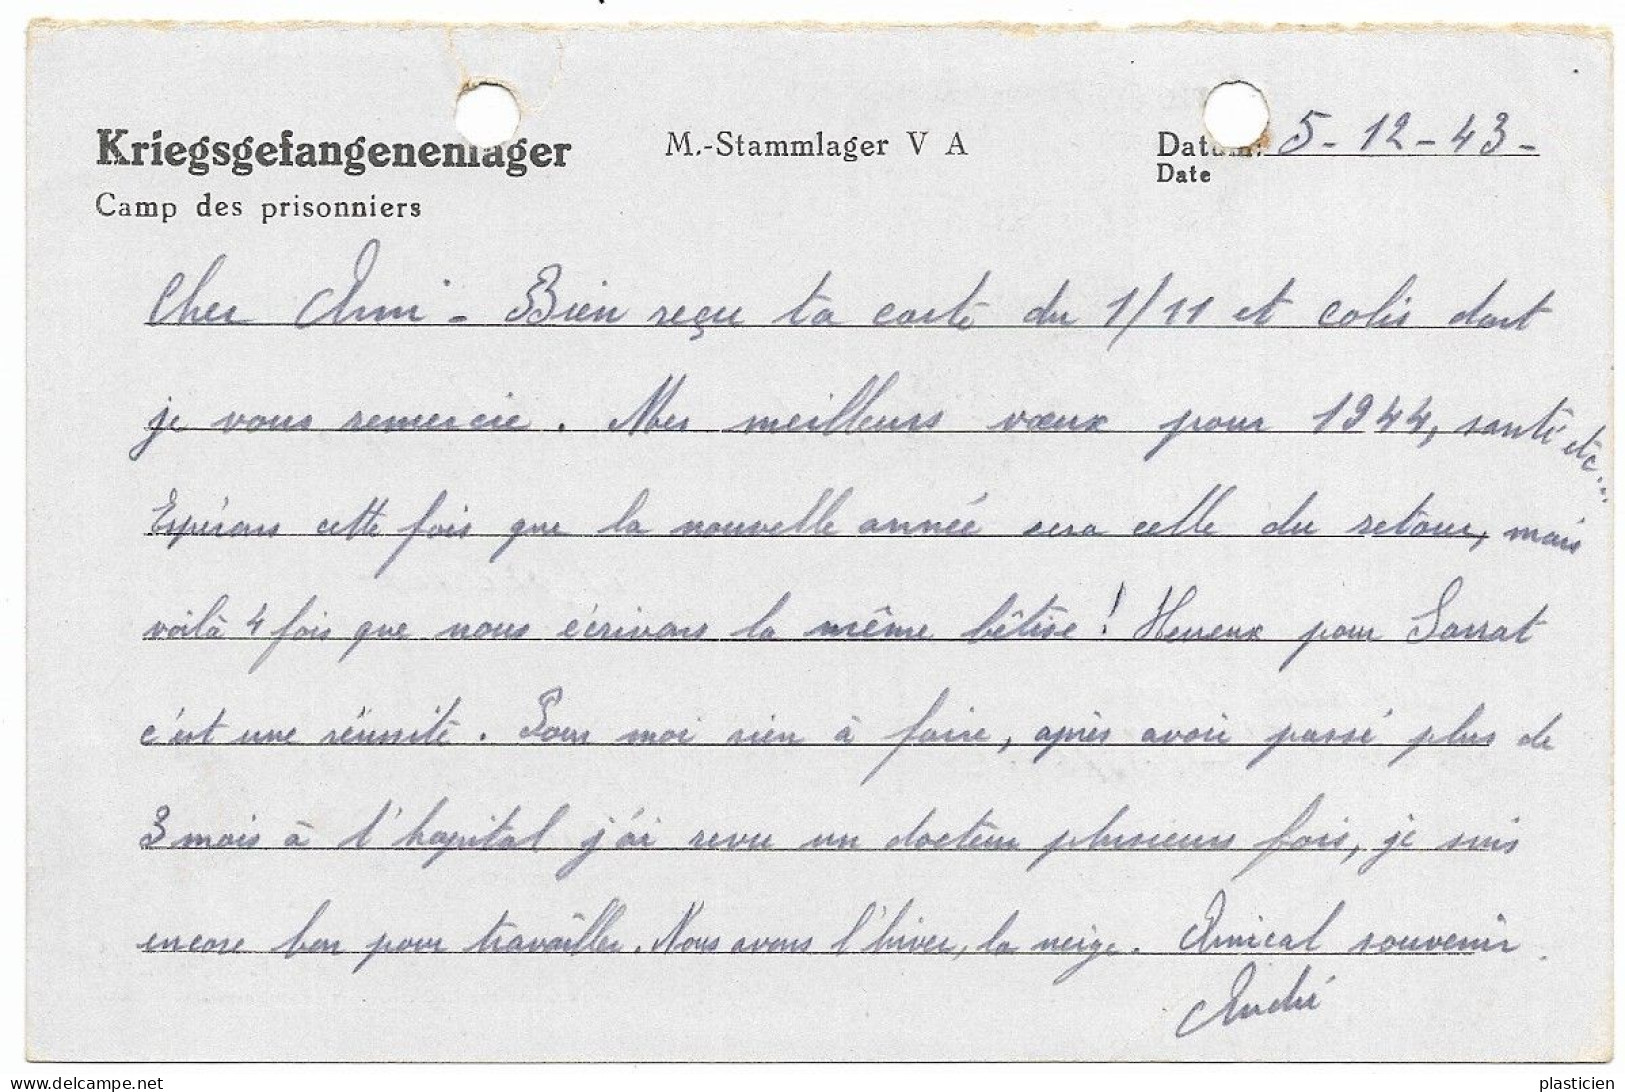 Kriegsgefangenenlager
M.-Stammlager V A
Datum: 5-12-43-
Camp des prisonniers
Date
Cher Ami - Bien reçu ta carte du 1/11 et colis dont
je vous remercie. Mes meilleurs vœux pour 1944, santé etc...
Espérons cette fois que la nouvelle année sera celle du retour, mais
voilà 4 fois que nous écrivons la même bêtise! Heureux pour Sarrat
c'est une réussite. Pour moi rien à faire, après avoir passé plus de
3 mois à l'hopital j'ai revu un docteur plusieurs fois, je suis
encore bon pour travailler. Nous avons l'hiver, la neige. Amical souvenir.
André
delcampe.net
plasticien